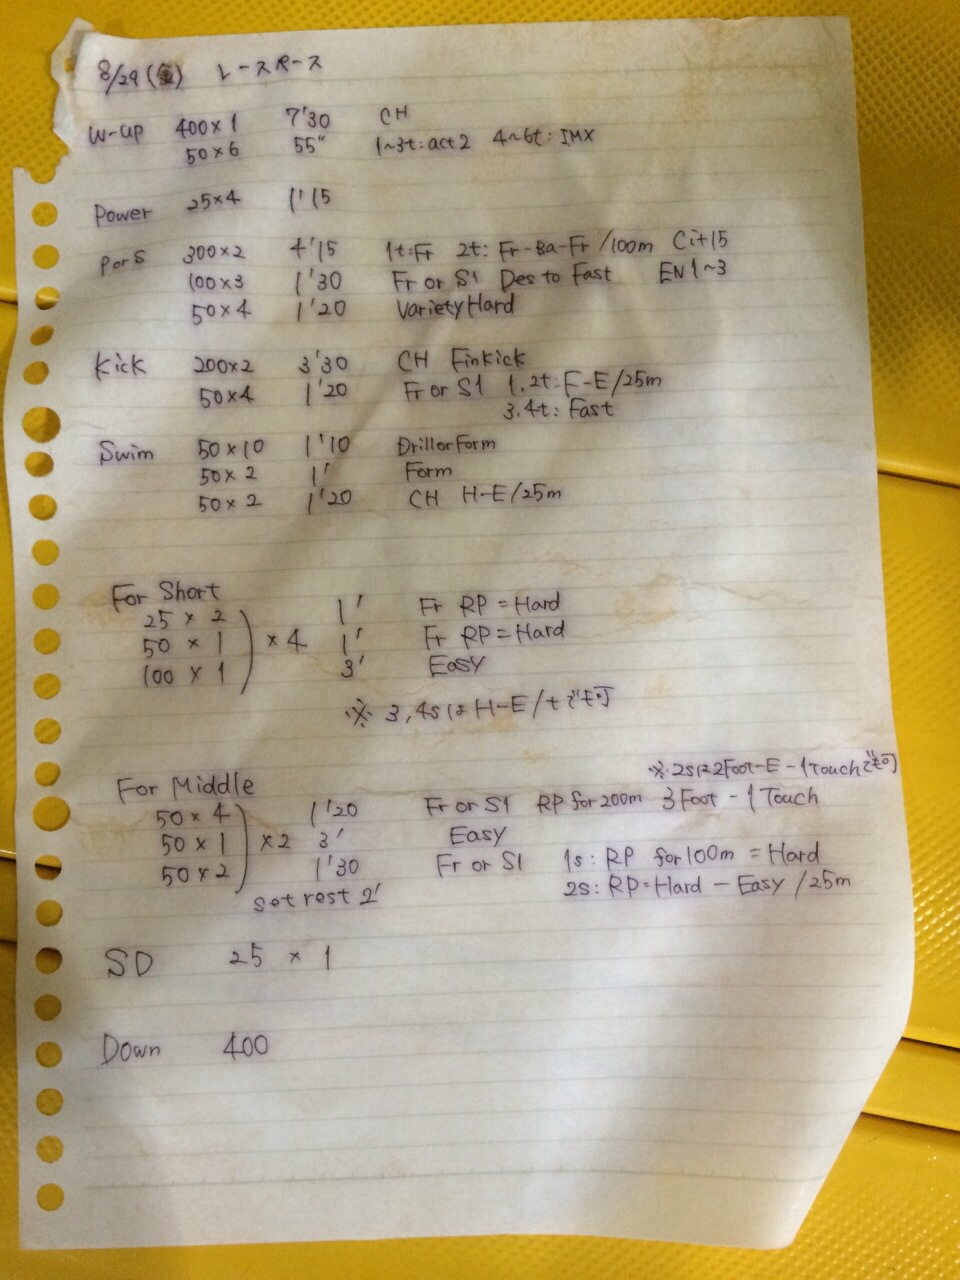 8/29(金) レースペース
W-up 400×1 7'30 CH
50×6 55" 1~3t:act2 4~6t:IMX
Power 25×4 1'15
PorS 300×2 4'15 1t:Fr 2t:Fr-Ba-Fr/100m Cit15
100×3 1'30 Fr or S1 Des to Fast EN1~3
50×4 1'20 VarietyHard
Kick 200×2 3'30 CH Finkick
50×4 1'20 Fr or S1 1.2t:F-E/25m
3.4t:Fast
Swim 50×10 1'10 DrillorForm
50×2 1' Form
50×2 1'20 CH H-E/25m
For Short
25×2 1' Fr RP=Hard
50×1 ×4 1' Fr RP=Hard
100×1 3' Easy
※3,4sはH-E/tでも可
※2sは2Foot-E-1Touchでも可
For Middle
50×4 1'20 Fr or S1 RP for 200m 3Foot-1Touch
50×1 ×2 3' Easy
50×2 1'30 Fr or S1 1s:RP for100m=Hard
set rest 2' 2s:RP=Hard-Easy/25m
SD 25×1
Down 400